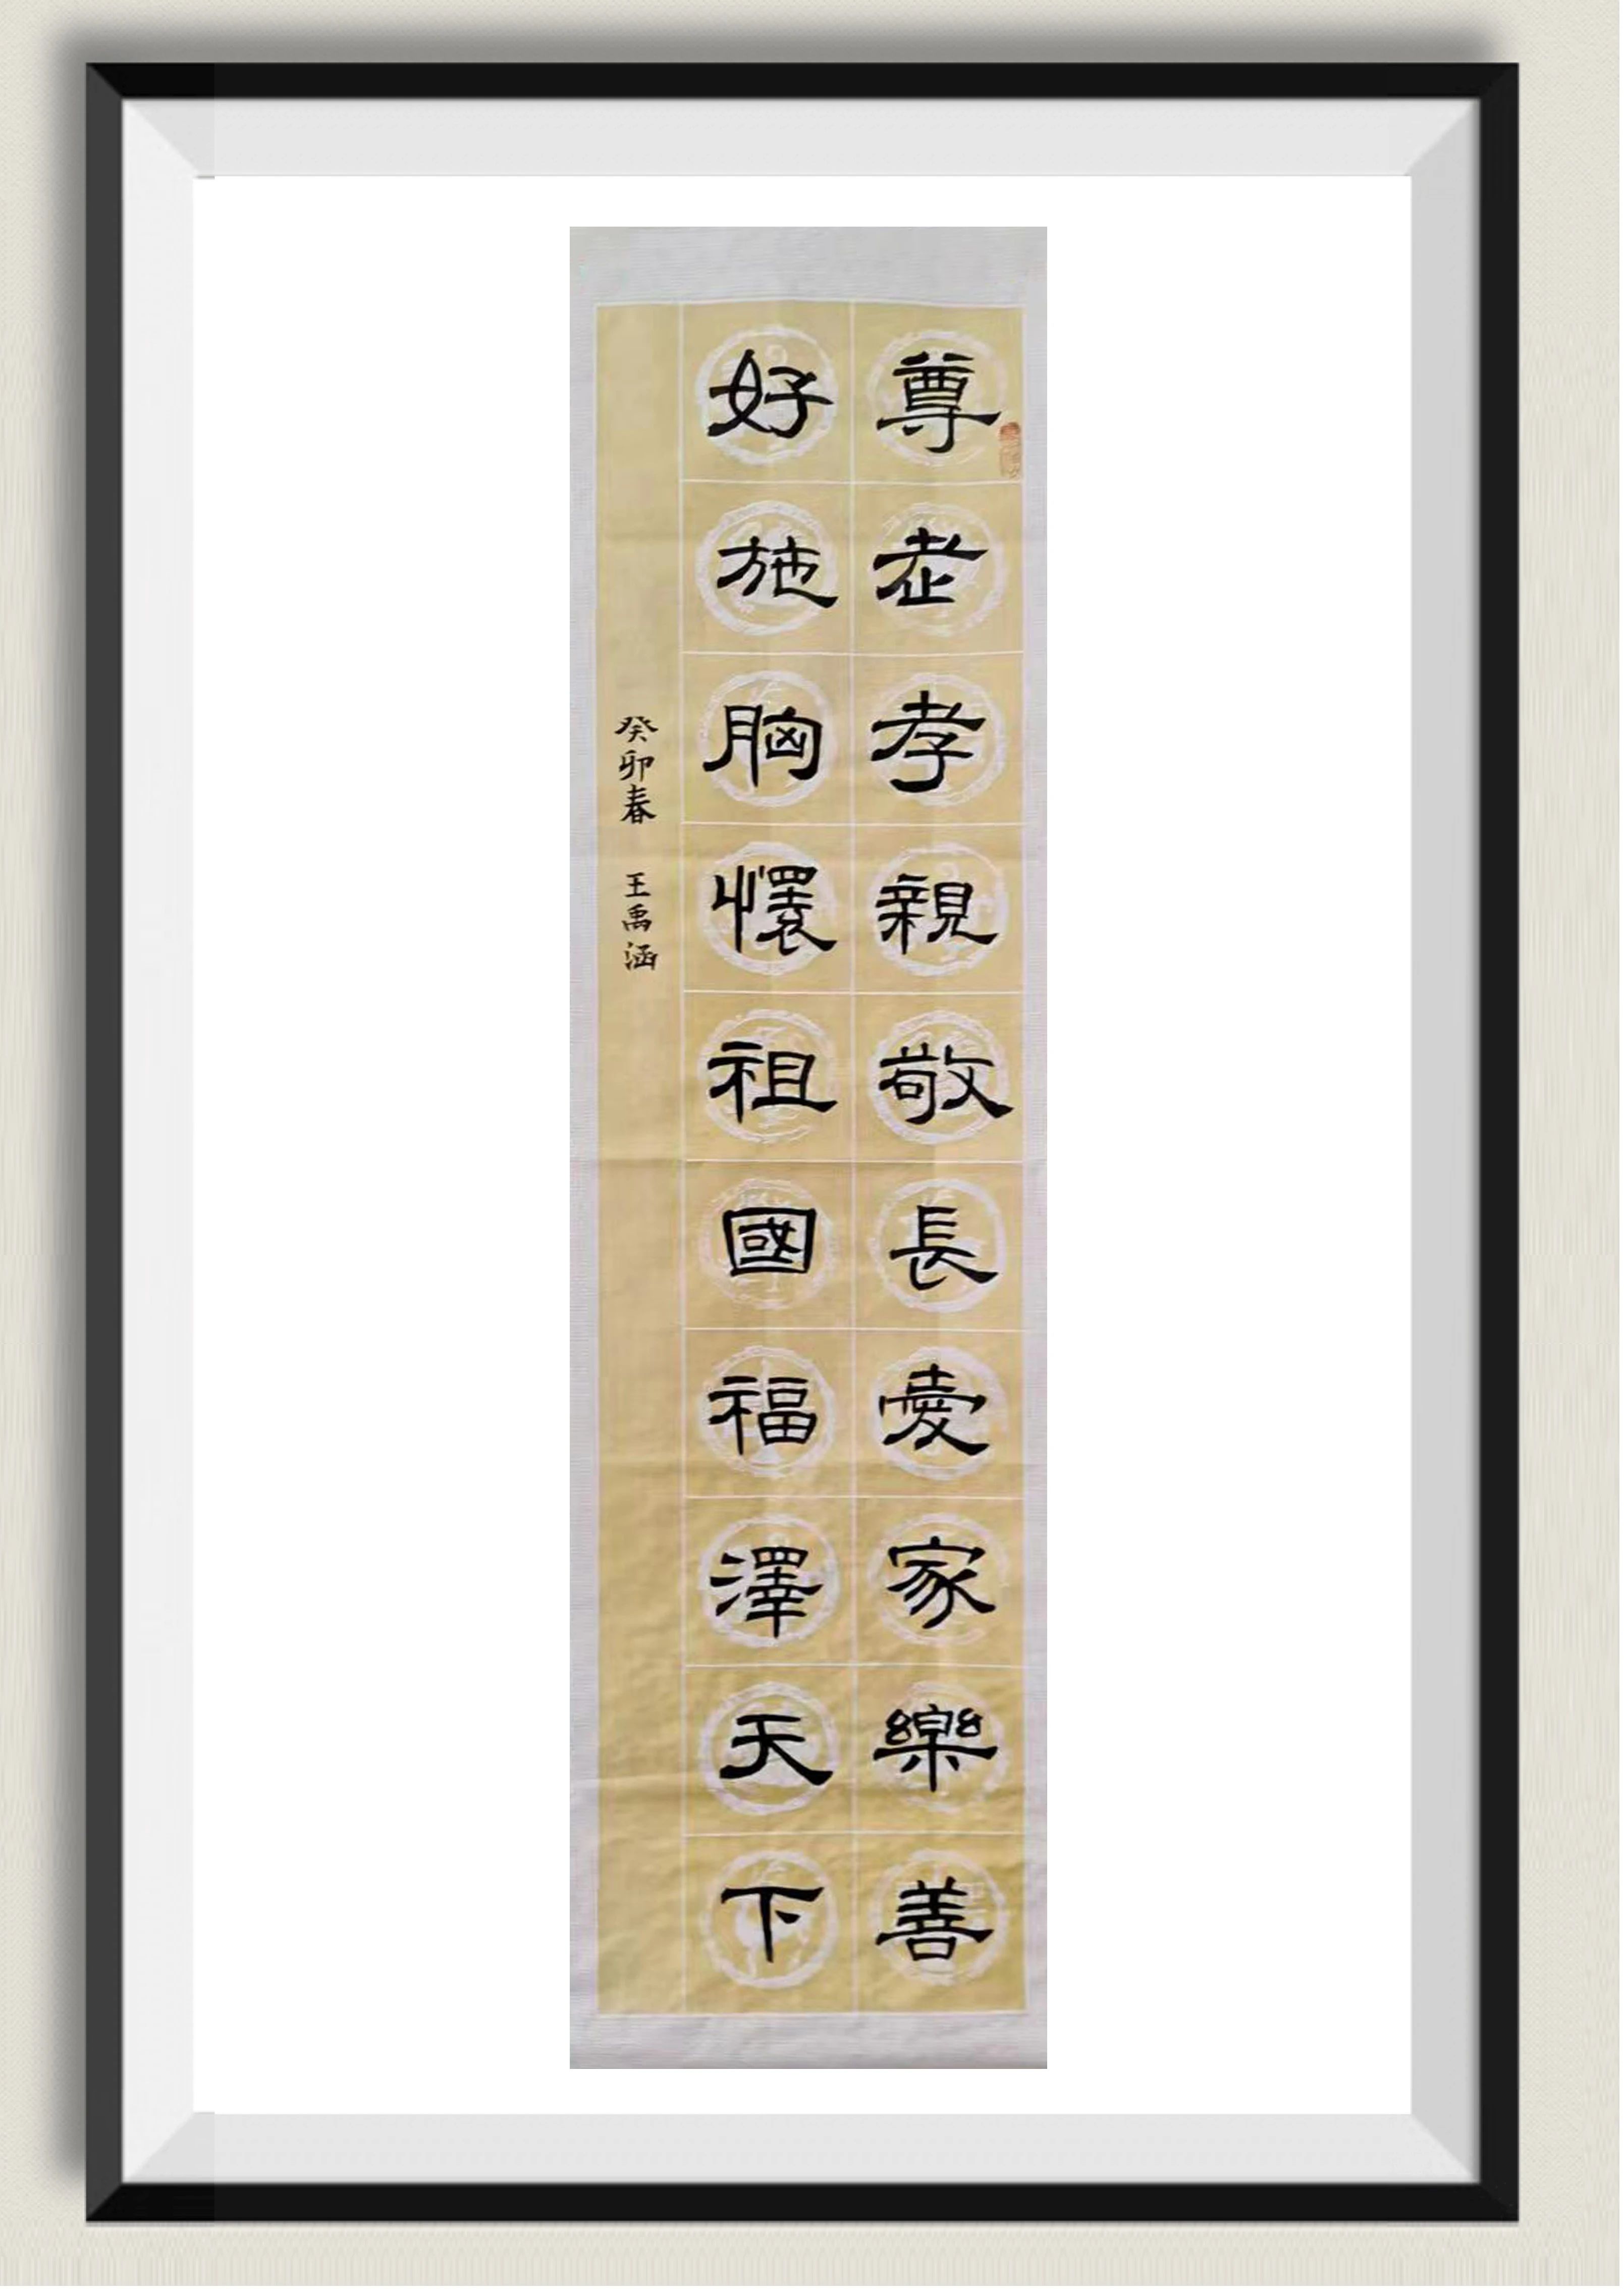 尊老孝親敬長愛家樂善
好施胸懷祖國福澤天下
癸卯春 王禹涵